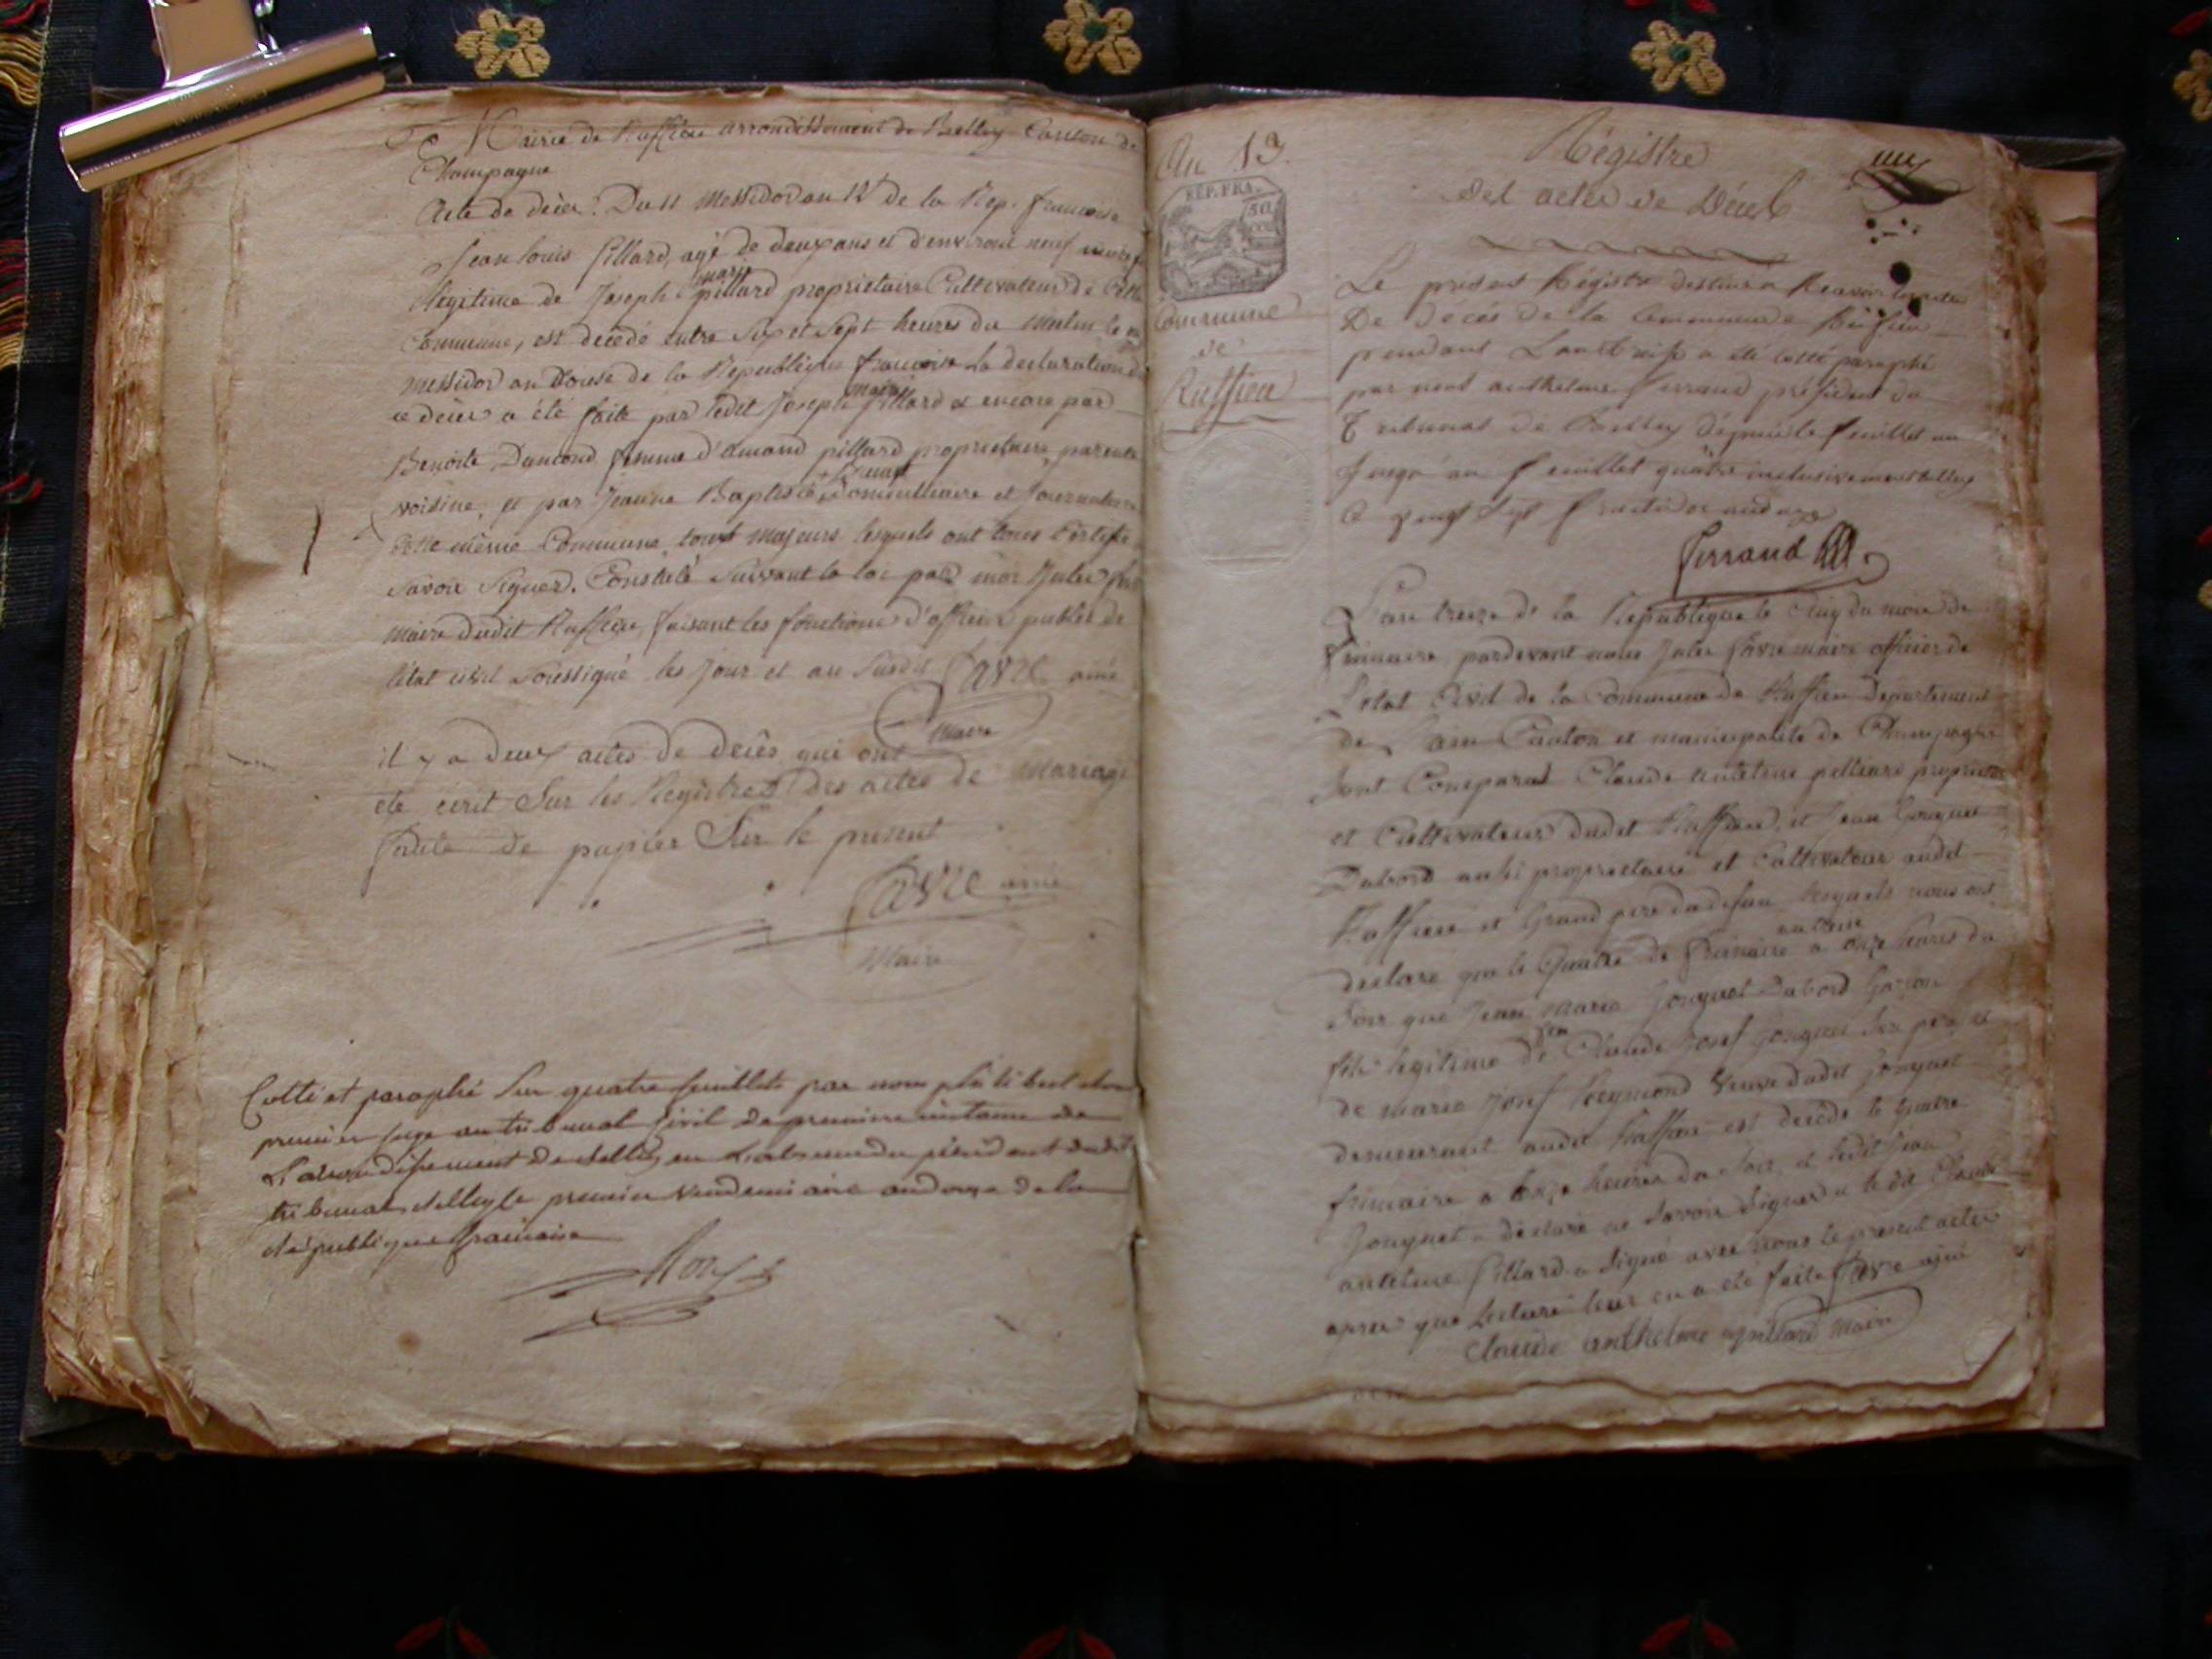 Mairie de Ruffieu arrondissement de Belley Canton de
Champagne
Acte de décès. Du 11 Messidor an 12 de la Rep. francoise
Jean louis pillard, agé de deux ans et d'environt neuf mois f
légitime de Joseph marie pillard proprietaire Cultivateur de Cette
Commune, est décédé entre Six et Sept heures du Matin le
messidor an Douse de la Republique francoise la declaration d
ce décès a été faite par ledit Joseph marie pillard et encore par
Benoite Dumond femme d'amand pillard proprietaire, parente
voisine, et par Jeanne Baptiste et Journaliere
Cette même Commune, tous majeurs lesquels ont tous Certifié
savoir Signer. Constaté Suivant la loi par moi Jules
maire dudit Ruffieu, faisant les fonctions d'officier public de
l'état civil Soussigné les jour et an Susdit Favre ainé
Maire
il y a deux actes de decès qui ont
été ecrit Sur les Registres des actes de mariage
faute de papier Sur le present
Favre ainé
Maire
Cotté et paraphé Sur quatre feuillets par nous
premier juge au tribunal Civil de premiere instance de
L'arrondissement de Belley en L'absence du président dudit
tribunal a Belley le premier Vendemiaire an douze de la
République francaise
An 13.
REP. FRA.
50
Commune
de
Ruffieu
Régistre
Des actes de Décés
Le présent Régistre destiné a Recevoir les actes
De Décés de la Commune de Ruffieu
pendant L'an treize a été cotté paraphé
par nous anthelme ferrand président du
Tribunal de Belley depuis le feuillet un
Jusqu'au feuillet quatre inclusivement Belley
Ce vingt Sept fructidor an douze
Ferrand
L'an treize de la Republique le Cinq du mois de
frimaire, pardevant nous Jules favre maire officier de
L'etat Civil de la Commune de Ruffieu Departement
de L'ain Canton et municipalite de Champagne
Sont Comparus Claude anteleme pillard proprietaire
et Cultivateur dudit Ruffieu, et Jean Jouguet
Dubord aussi proprietaire et Cultivateur audit
Ruffieu et Grand pere du defun lesquels nous ont
declaré que le Quatre de frimaire an treize a onze heures du
Soir que Jean Marie Jouguet Dubord Garçon
fils legitime de feu Claude Josef Jouguet Son pere et
de marie Josef Reymond Veuve dudit Jouguet
demeurant audit Ruffieu est decedé le Quatre
frimaire a onze heures du Soir, et ledit Jean
Jouguet a declaré ne Savoir Signer et le dit Claude
antelme pillard a Signé avec nous le present acte
apres que Lecture leur en a eté faite Favre ainé
Claude anthelme pillard Maire